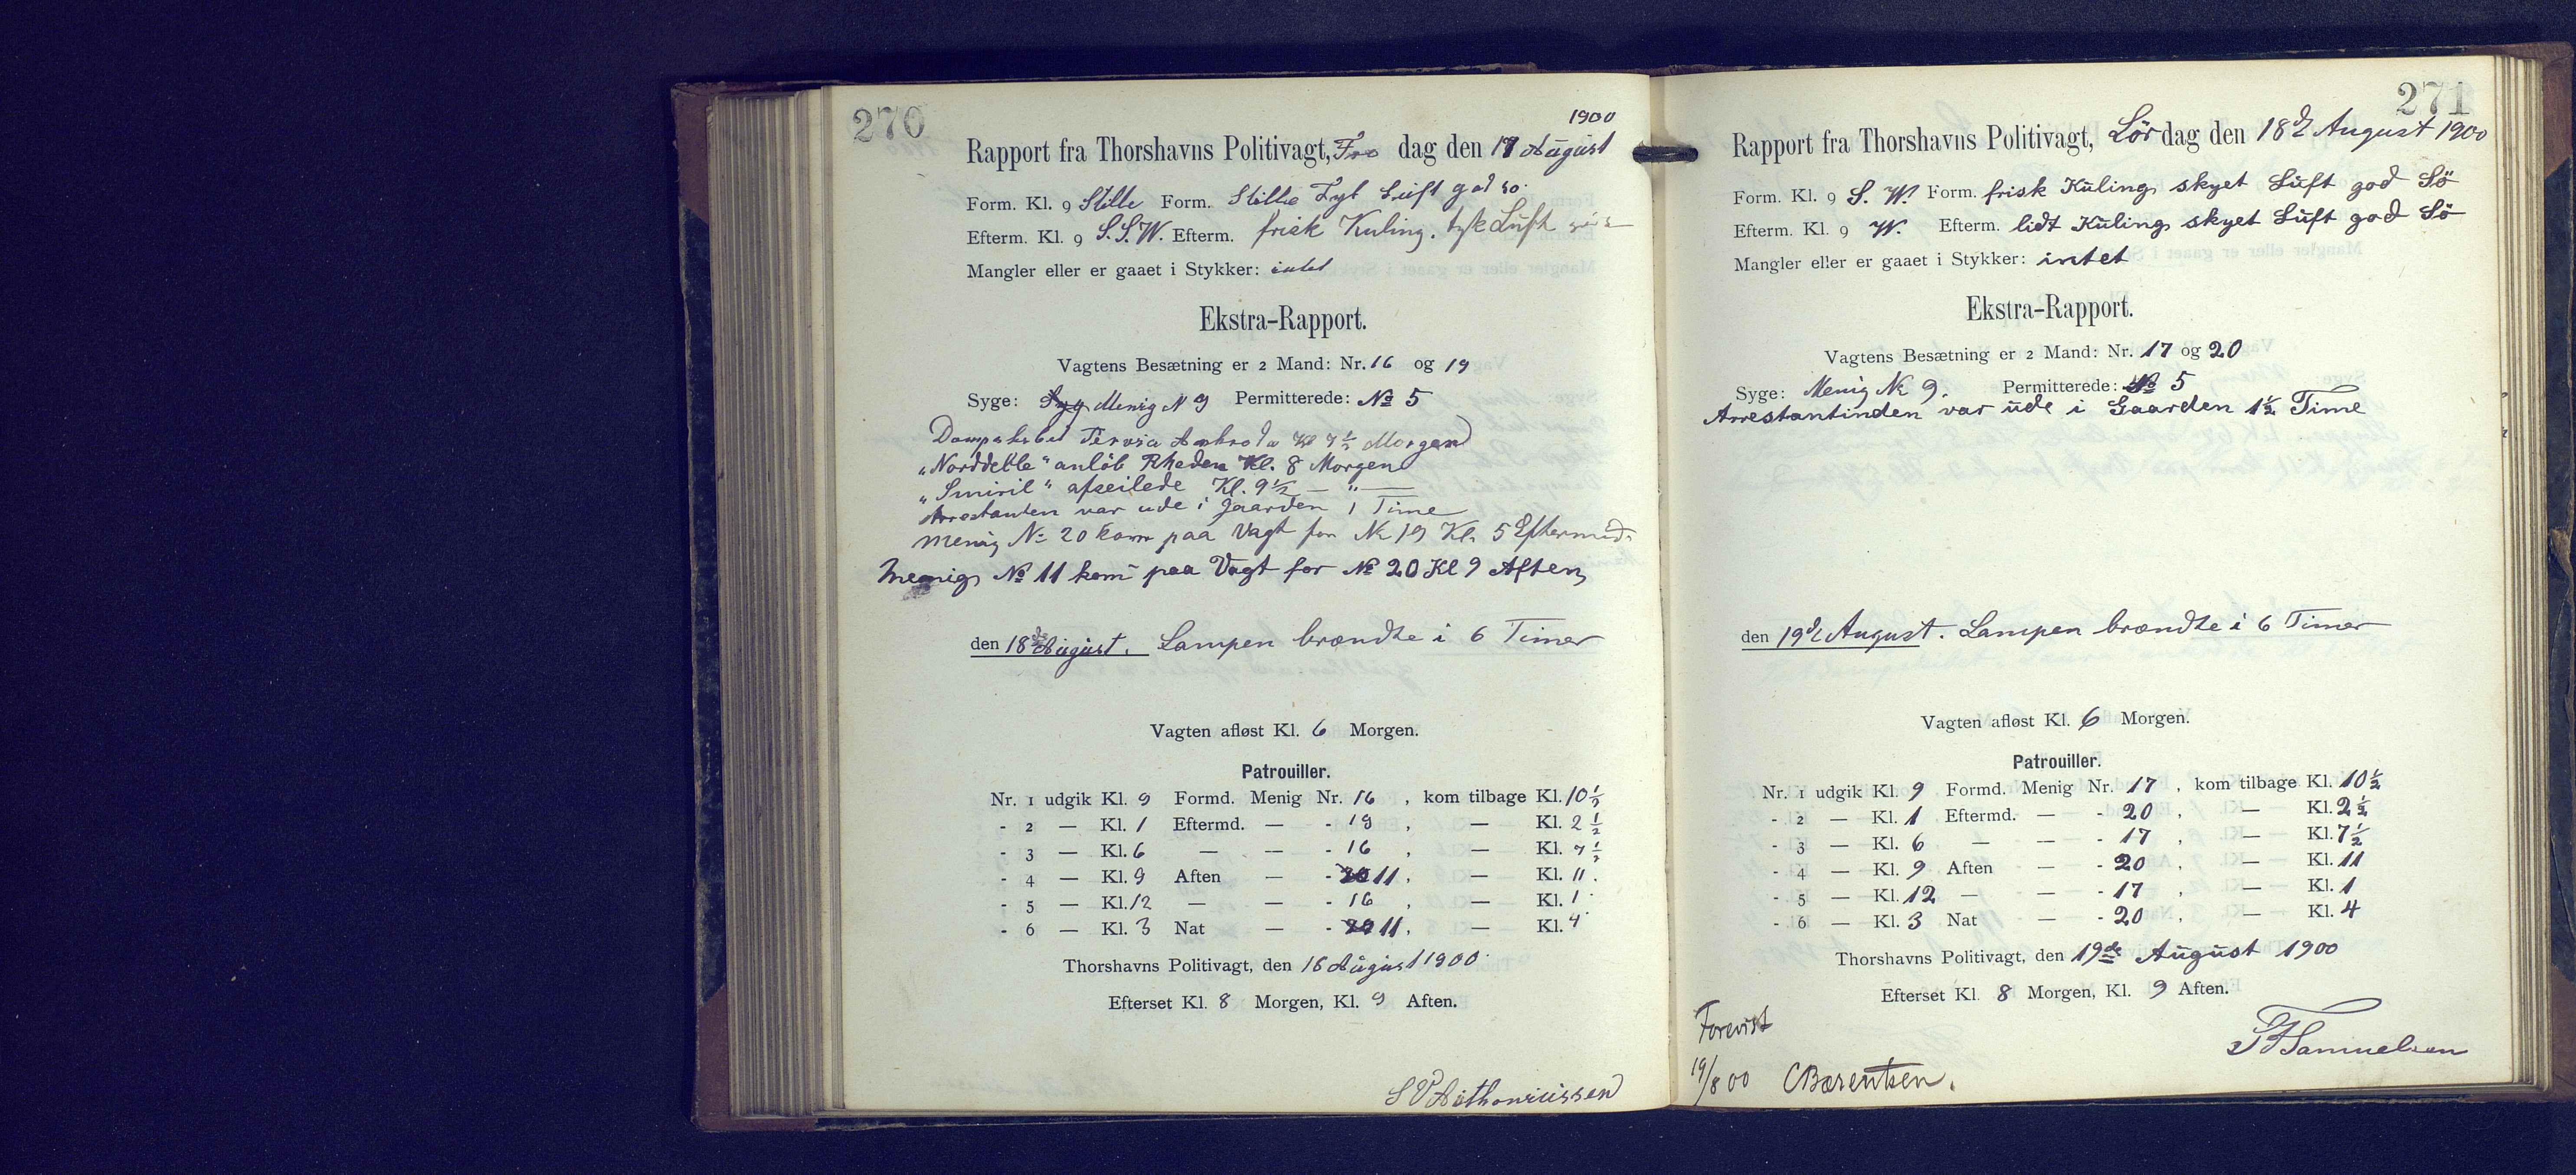 270
1900
Rapport fra Thorshavns Politivagt, Fre dag den 17 August
Form. Kl. 9 Stille Form. Stille Tyk Luft god so.
Efterm. Kl. 9 S.S.W. Efterm. frisk Kuling. tyk Luft
Mangler eller er gaaet i Stykker: intet
Ekstra-Rapport.
Vagtens Besætning er 2 Mand: Nr. 16 og 19
Syge: Menig N 9 Permitterede: No 5
Dampskibet Kl 7½ Morgen
„Norddeble“ anlöb Rheden Kl. 8 Morgen
„Smiril“ afseilede Kl. 9½ — „ —
Arrestanten var ude i Gaarden 1 Time
Menig No 20 kom paa Vagt for No 19 Kl. 5 Eftermid.
Menig No 11 kom paa Vagt for No 20 Kl 9 Aften
den 18de August. Lampen brændte i 6 Timer
Vagten afløst Kl. 6 Morgen.
Patrouiller.
Nr. 1 udgik Kl. 9 Formd. Menig Nr. 16 , kom tilbage Kl. 10½
- 2 — Kl. 1 Eftermd. — - 19 , — Kl. 2½
- 3 — Kl. 6 — — - 16 , — Kl. 7½
- 4 — Kl. 9 Aften — - 20 11 , — Kl. 11.
- 5 — Kl. 12 — — - 16 , — Kl. 1
- 6 — Kl. 3 Nat — - 20 11 , — Kl. 4
Thorshavns Politivagt, den 18 August 1900.
Efterset Kl. 8 Morgen, Kl. 9 Aften.
271
Rapport fra Thorshavns Politivagt, Lör dag den 18de August 1900
Form. Kl. 9 S. W. Form. frisk Kuling skyet Luft god Sö
Efterm. Kl. 9 W. Efterm. lidt Kuling skyet Luft god Sö
Mangler eller er gaaet i Stykker: intet
Ekstra-Rapport.
Vagtens Besætning er 2 Mand: Nr. 17 og 20
Syge: Menig No 9. Permitterede: No 5
Arrestantinden var ude i Gaarden 1½ Time
den 19de August. Lampen brændte i 6 Timer
Vagten afløst Kl. 6 Morgen.
Patrouiller.
Nr. 1 udgik Kl. 9 Formd. Menig Nr. 17 , kom tilbage Kl. 10½
- 2 — Kl. 1 Eftermd. — - 20 , — Kl. 2½
- 3 — Kl. 6 — — - 17 , — Kl. 7½
- 4 — Kl. 9 Aften — - 20 , — Kl. 11
- 5 — Kl. 12 — — - 17 , — Kl. 1
- 6 — Kl. 3 Nat — - 20 , — Kl. 4
Thorshavns Politivagt, den 19de August 1900
Efterset Kl. 8 Morgen, Kl. 9 Aften.
Forevist
Samuelsen
19/8 00 CBærentsen.